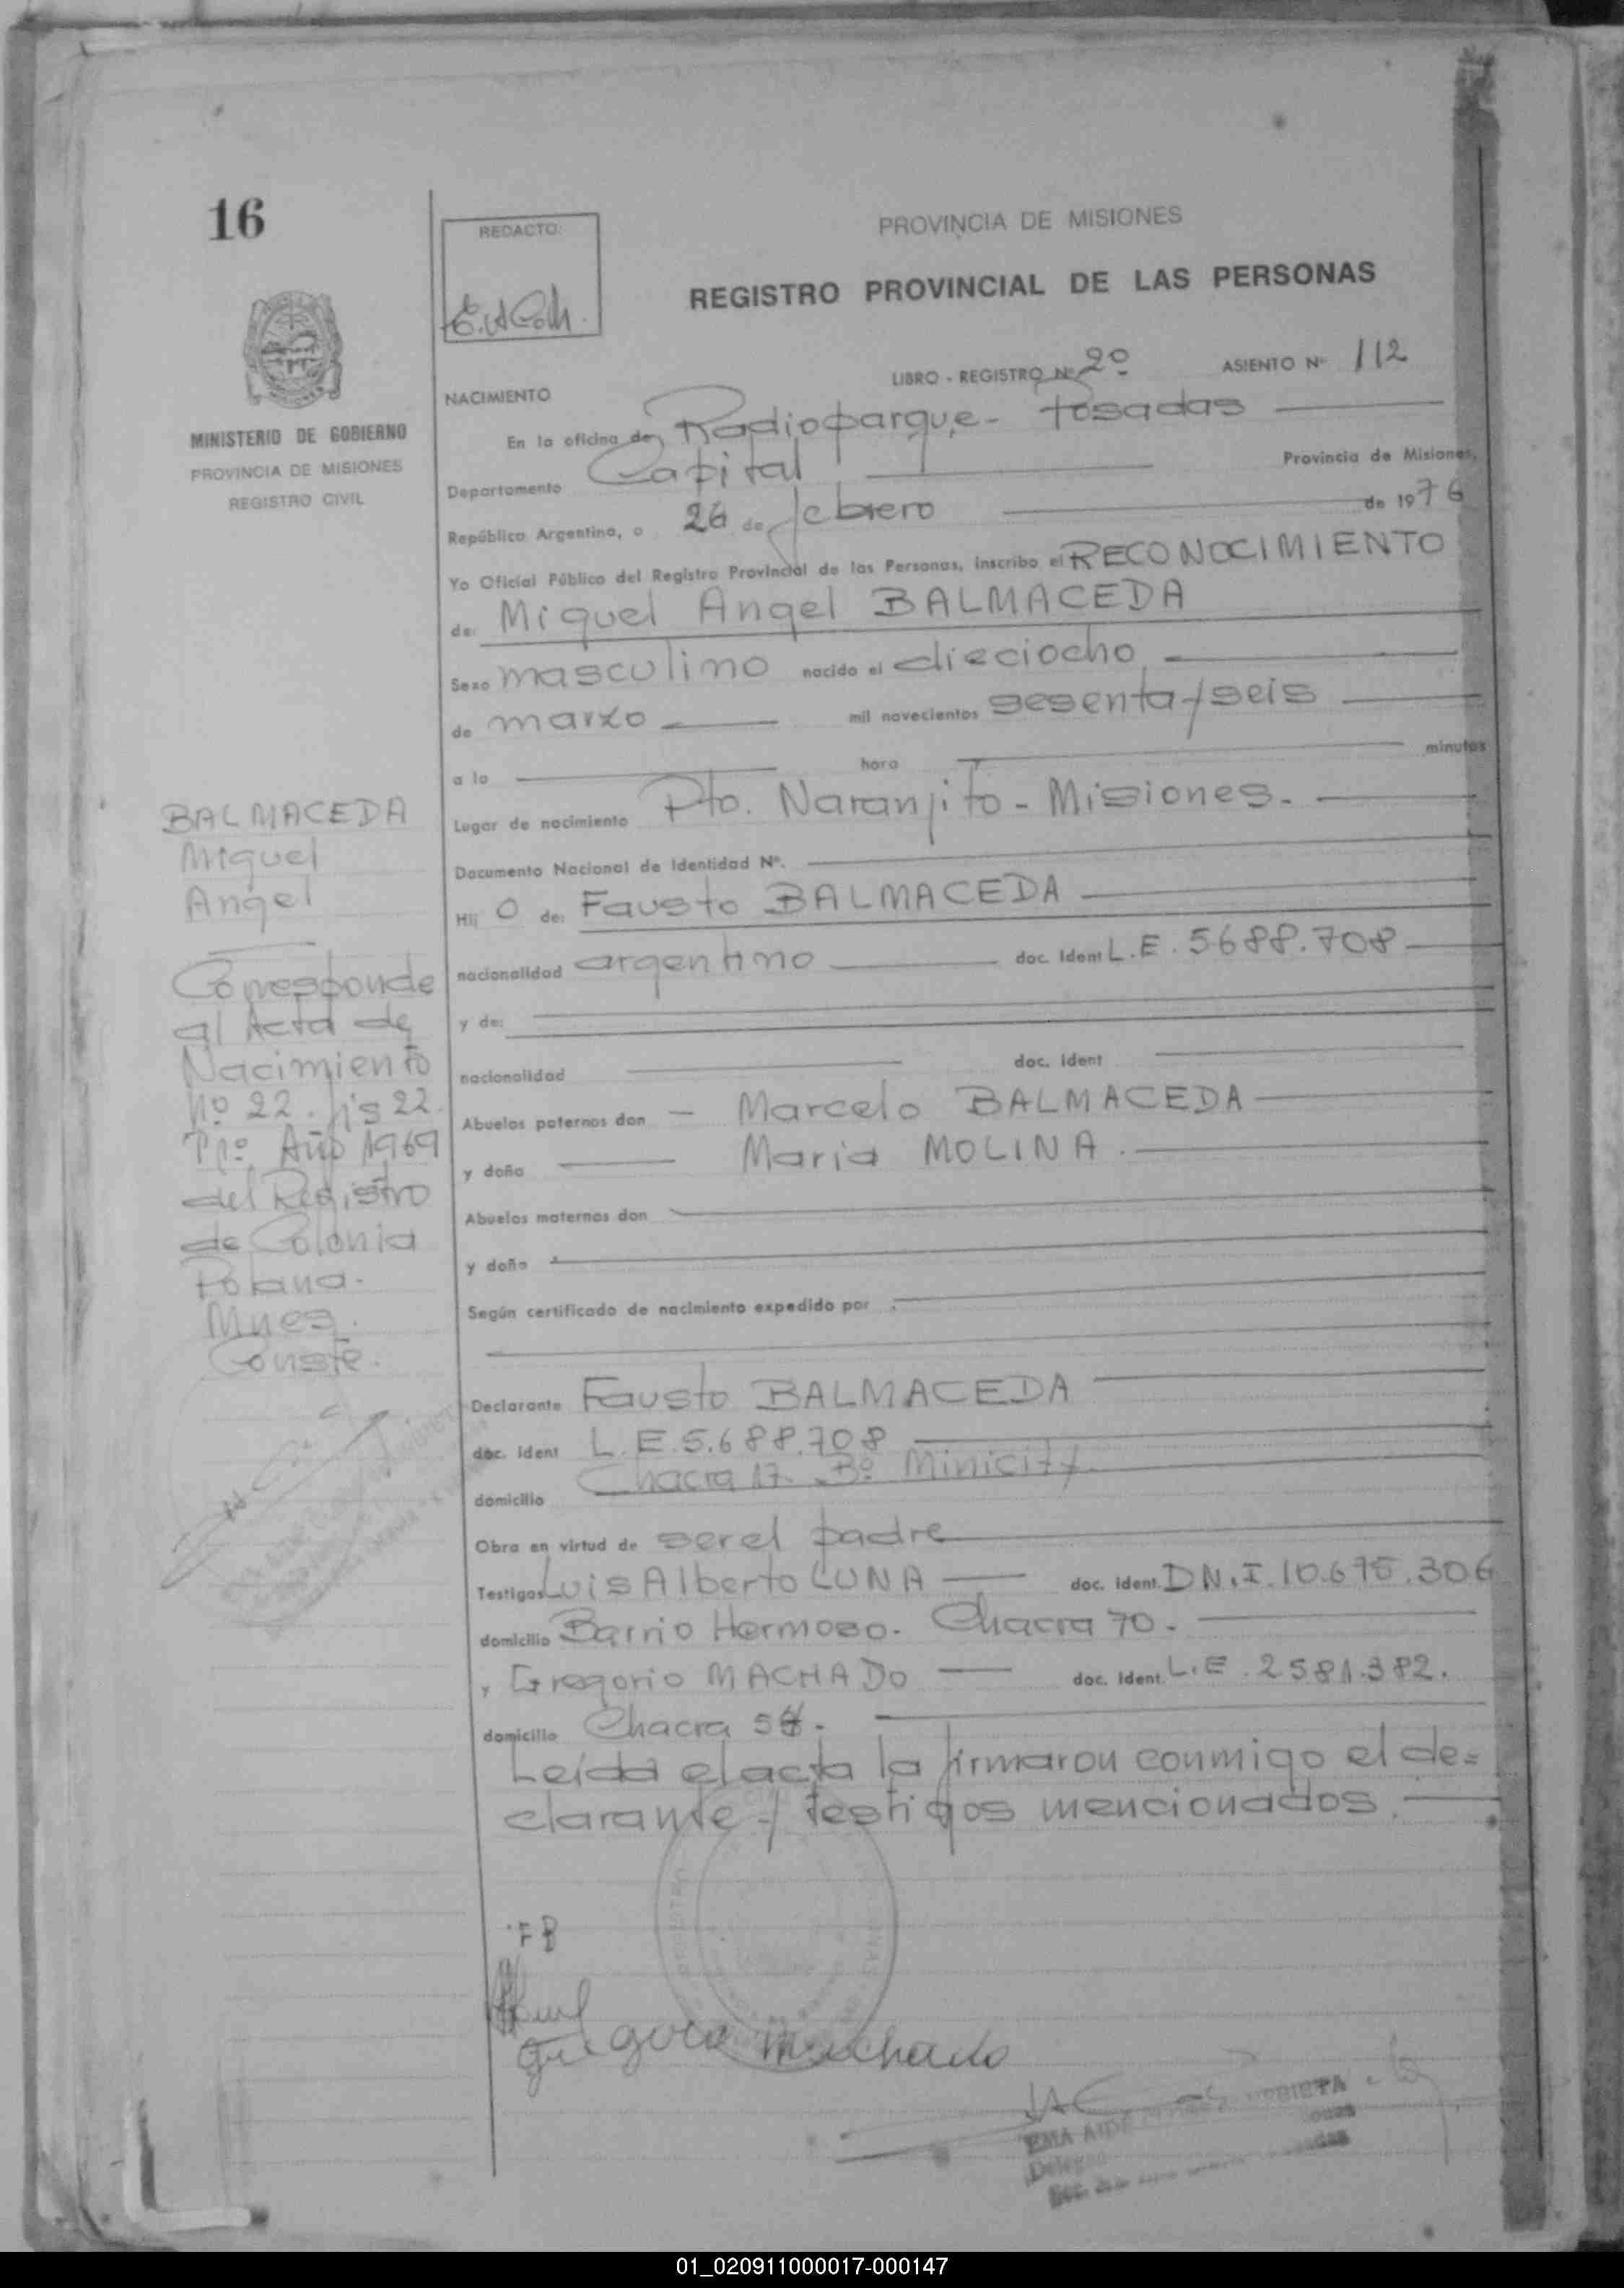 16
REDACTO:
PROVINCIA DE MISIONES
REGISTRO PROVINCIAL DE LAS PERSONAS
MINISTERIO DE GOBIERNO
PROVINCIA DE MISIONES
REGISTRO CIVIL
LIBRO - REGISTRO Nº 2º ASIENTO Nº 112
NACIMIENTO
En la oficina de Radioparque - Posadas
Departamento Capital Provincia de Misiones,
República Argentina, a 26 de febrero de 1976
Yo Oficial Público del Registro Provincial de las Personas, inscribo el RECONOCIMIENTO
de: Miguel Angel BALMACEDA
Sexo masculino nacido el dieciocho
de marzo mil novecientos sesenta y seis
a la hora minutos
Lugar de nacimiento Pto. Naranjito - Misiones.
Documento Nacional de Identidad Nº.
Hij o de: Fausto BALMACEDA
nacionalidad argentino doc. Ident L.E. 5688.708
y de:
nacionalidad doc. Ident
Abuelos paternos don - Marcelo BALMACEDA
y doña Maria MOLINA.
Abuelos maternos don
y doña
Según certificado de nacimiento expedido por
Declarante Fausto BALMACEDA
doc. Ident L.E. 5.688.708
domicilio Chacra 17. Bº Minicity.
Obra en virtud de ser el padre
Testigos Luis Alberto LUNA doc. ident. D.N.I. 10.675.306
domicilio Barrio Hermoso. Chacra 70.
y Gregorio MACHADO doc. Ident. L.E. 2581.382.
domicilio Chacra 54.
Leída el acta la firmaron conmigo el de=
clarante y testigos mencionados.
BALMACEDA
Miguel
Angel
Corresponde
al Acta de
Nacimiento
Nº 22. fjs 22.
Tº 1º Año 1969
del Registro
de Colonia
Polana.
Mnes.
Conste.
FB
Gregorio Machado
EMA AIDE
01_020911000017-000147